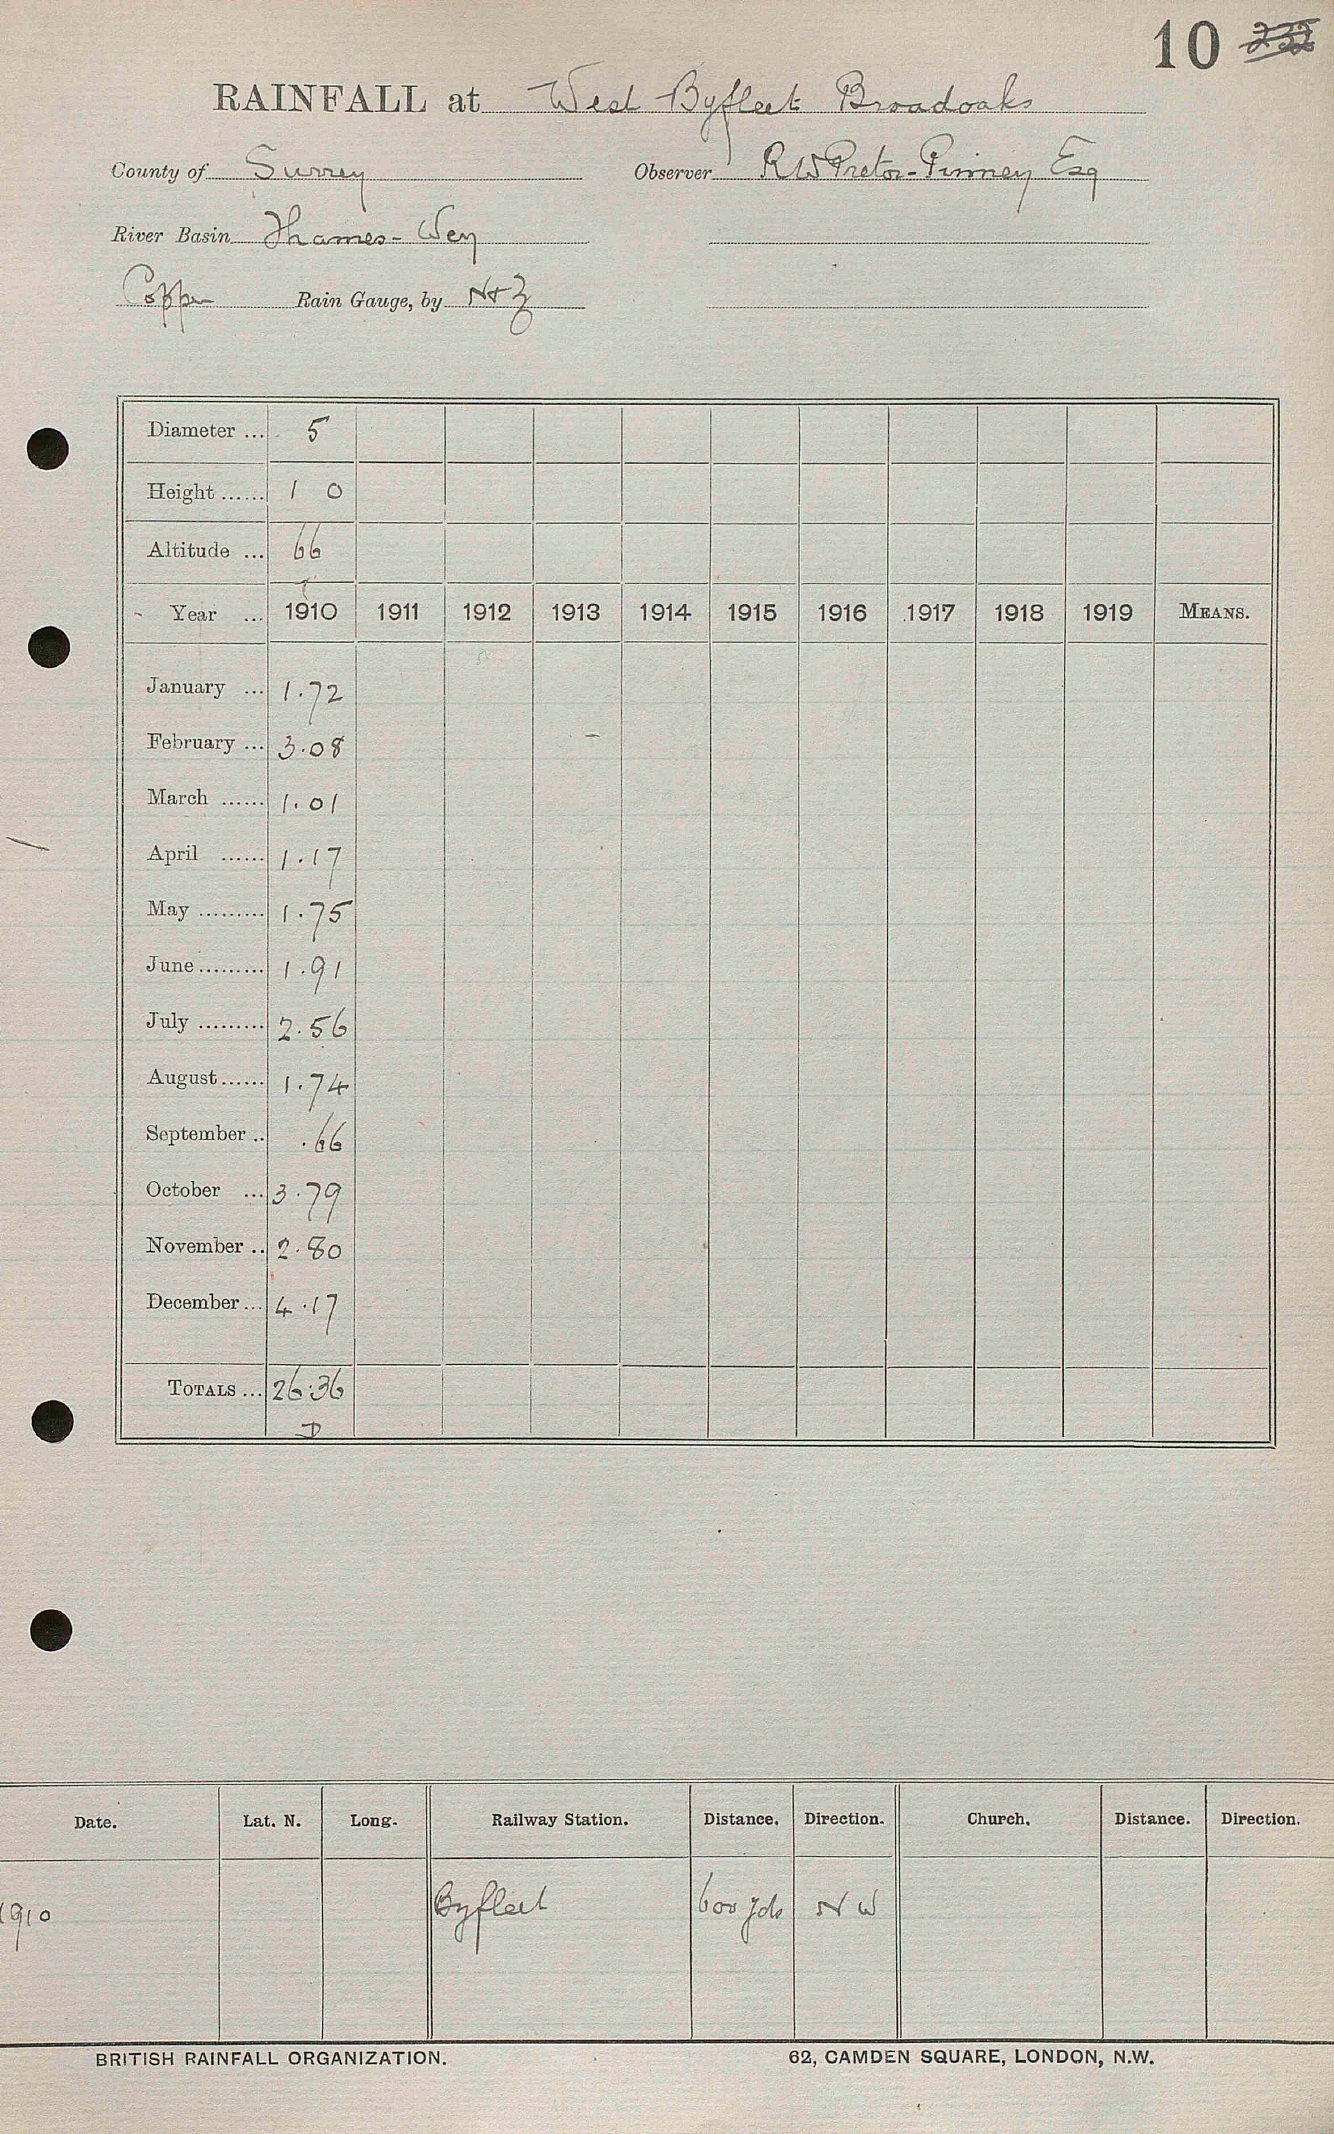 10 232
RAINFALL at West Byfleet Broadoaks
County of Surrey Observer R W Pretor-Pinney Esq
River Basin Thames-Wey
Copper Rain Gauge, by N+Z
Diameter ... 5
Height ...... 1 0
Altitude ... 66
Year ... 1910 1911 1912 1913 1914 1915 1916 1917 1918 1919 MEANS.
January ... 1.72
February ... 3.08
March ...... 1.01
April ...... 1.17
May ......... 1.75
June ......... 1.91
July ......... 2.56
August ...... 1.74
September .. .66
October ... 3.79
November .. 2.80
December ... 4.17
TOTALS ... 26.36
D
Date. Lat. N. Long. Railway Station. Distance. Direction. Church. Distance. Direction.
1910 Byfleet 600 yds N W
BRITISH RAINFALL ORGANIZATION. 62, CAMDEN SQUARE, LONDON, N.W.